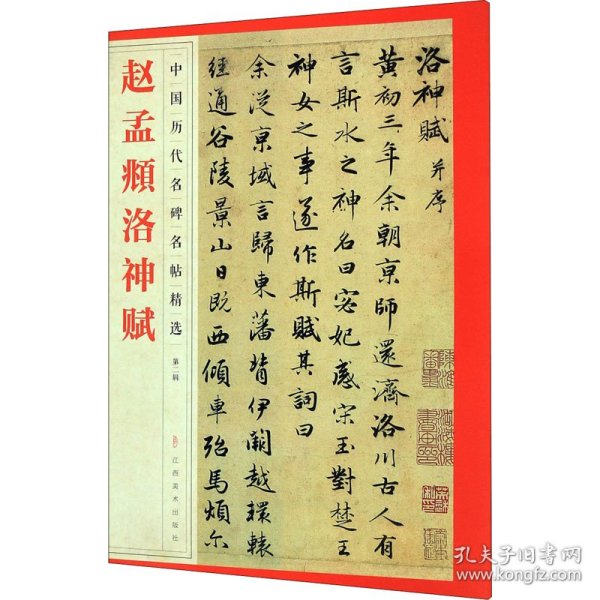 赵孟頫洛神赋
中国历代名碑名帖精选
第二辑
江西美术出版社
洛神赋 并序
黄初三年余朝京師還濟洛川古人有
言斯水之神名曰宓妃感宋玉對楚王
神女之事遂作斯賦其詞曰
余從京域言歸東藩背伊闕越轘轅
經通谷陵景山日既西傾車殆馬煩尓
孔夫子旧书网
www.kongfz.com